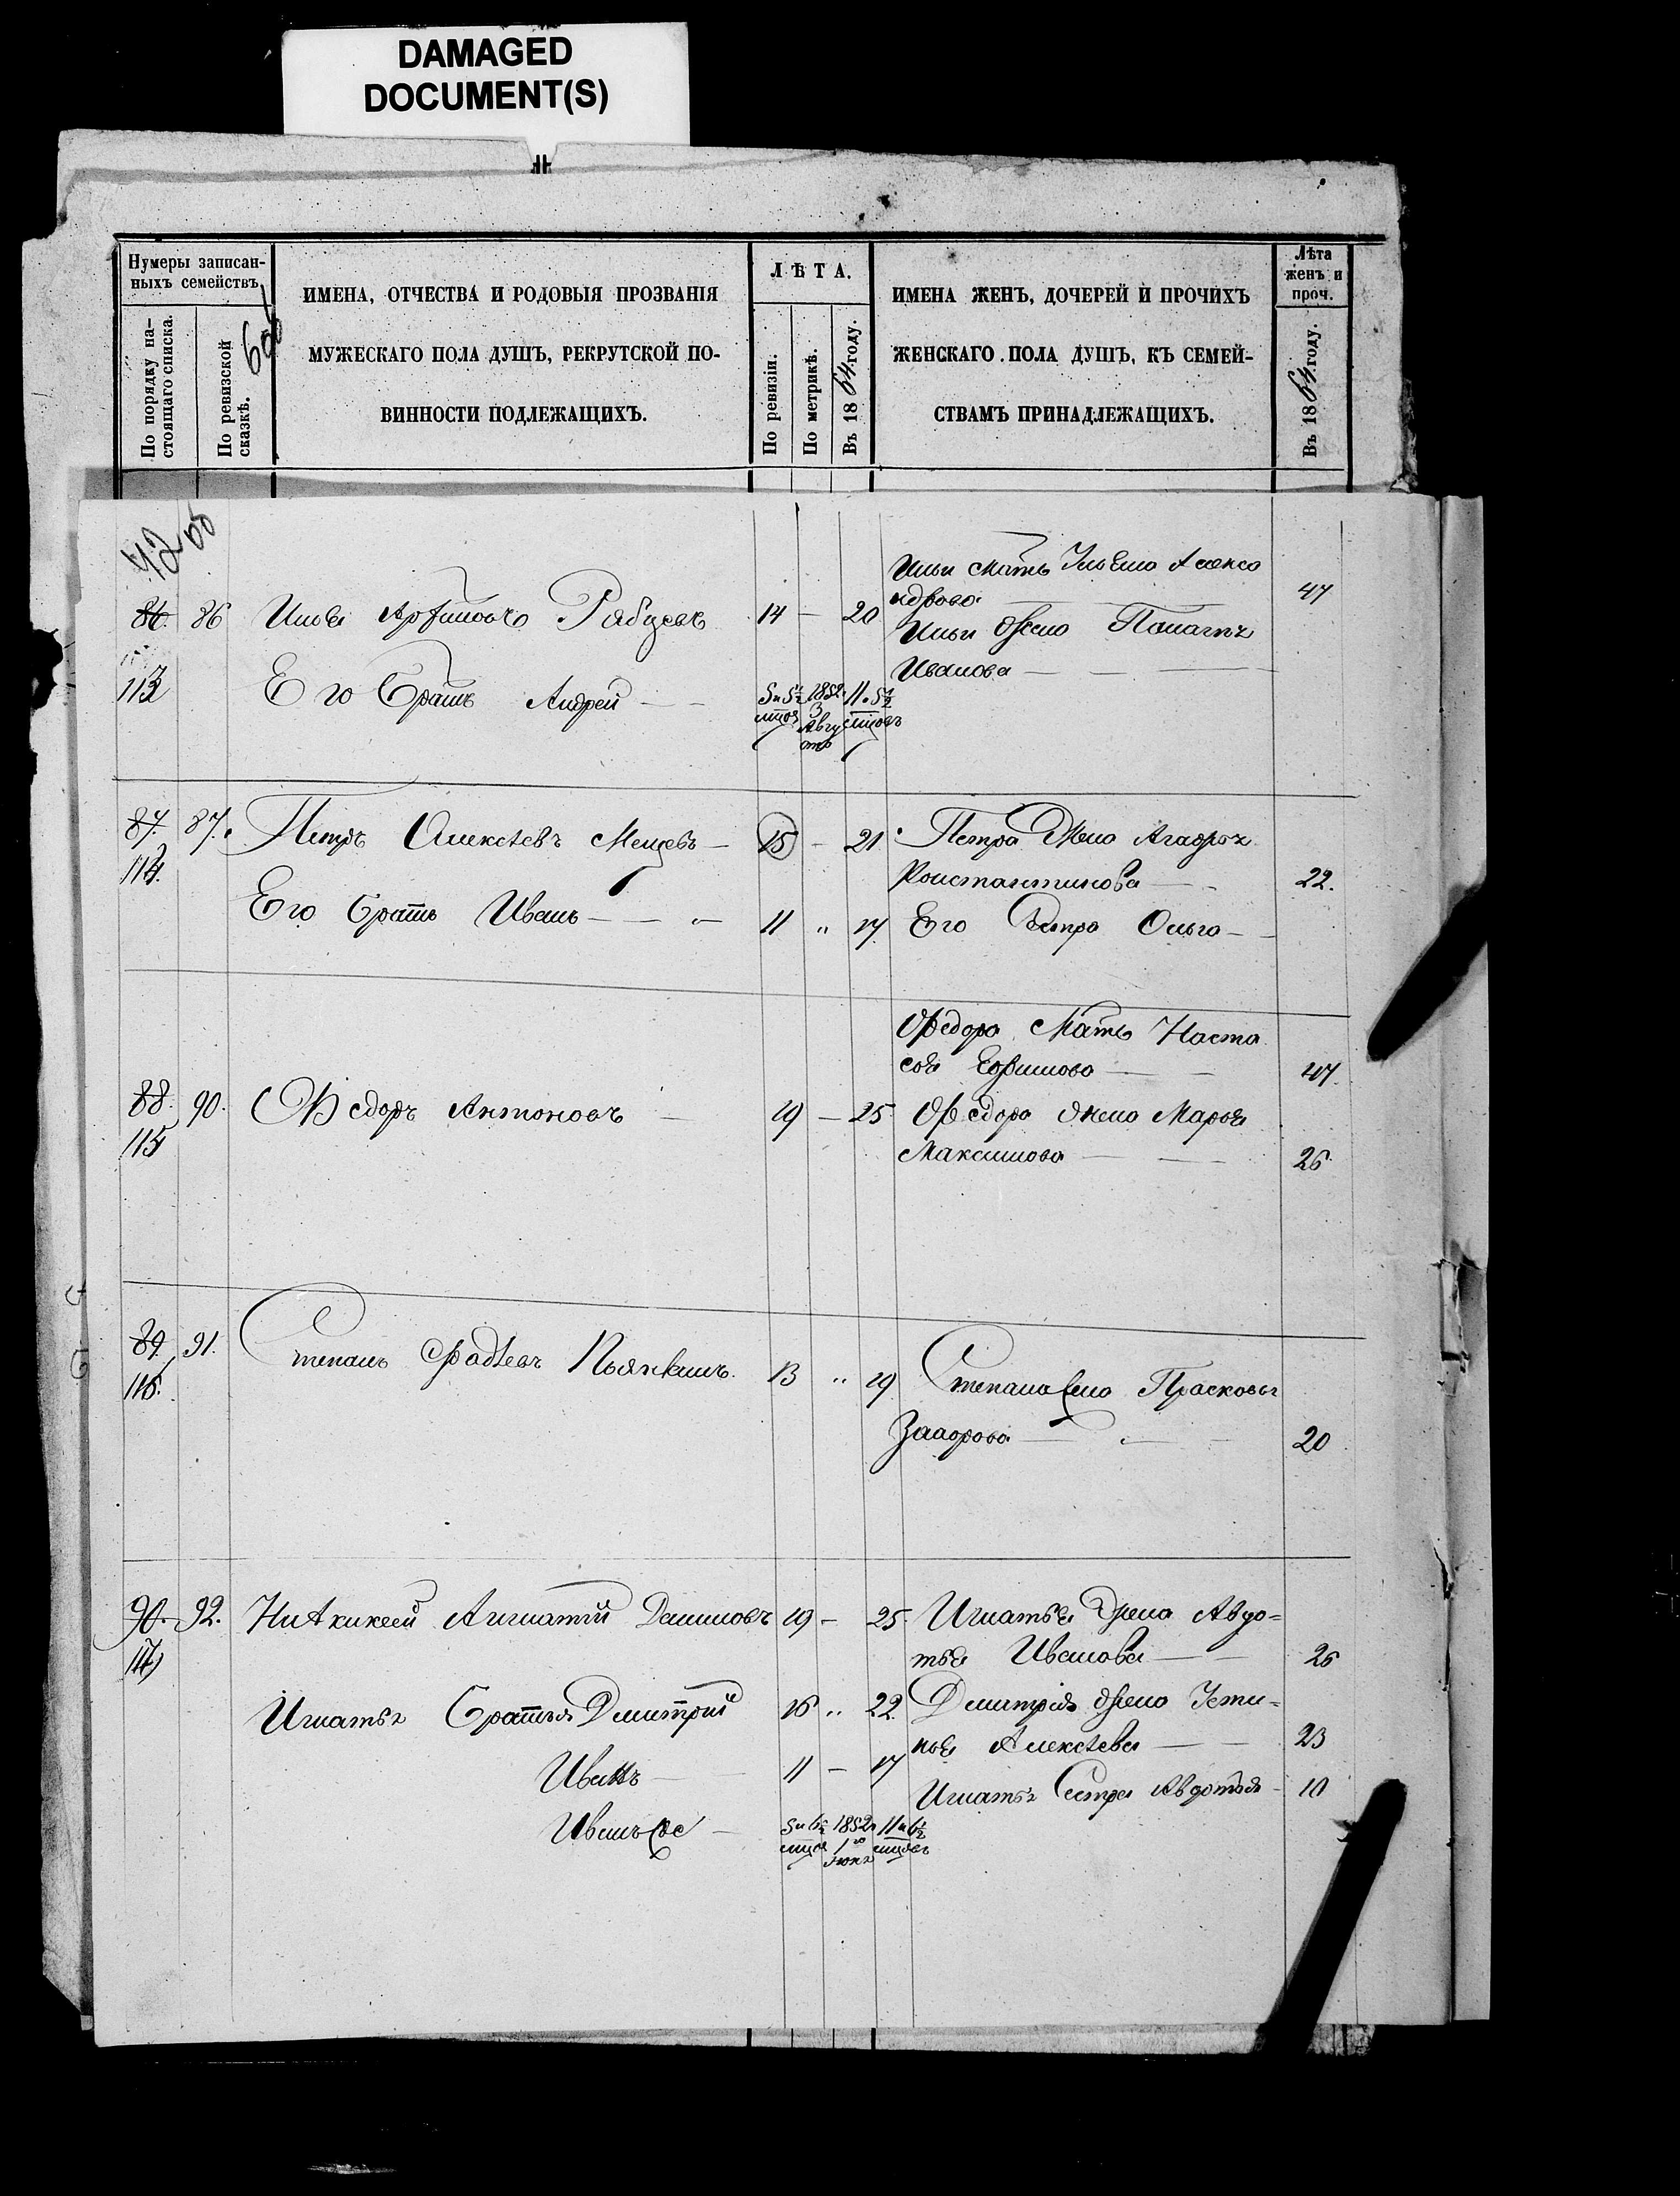 DAMAGED
DOCUMENT(S)
Нумеры записан-
ныхъ семействъ
По порядку на-
стоящаго списка.
По ревизской
сказкѣ.
ИМЕНА, ОТЧЕСТВА И РОДОВЫЯ ПРОЗВАНІЯ
МУЖЕСКАГО ПОЛА ДУШЪ, РЕКРУТСКОЙ ПО-
ВИННОСТИ ПОДЛЕЖАЩИХЪ.
ЛѢТА.
По ревизіи.
По метрикѣ.
Въ 1864 году.
ИМЕНА ЖЕНЪ, ДОЧЕРЕЙ И ПРОЧИХЪ
ЖЕНСКАГО ПОЛА ДУШЪ, КЪ СЕМЕЙ-
СТВАМЪ ПРИНАДЛЕЖАЩИХЪ.
Лѣта
женъ и
проч.
Въ 1864 году.
42 об
86. 86 Илья Рябцевъ 14 — 20
113
Его братъ Андрей — —
5 и 5½ 1852. 11 и 5½
3
Авгу
Ильи мать
47
Ильи жена
Иванова — — —
87. 87. Петръ Алексѣевъ — 15 - 21
114.
Его братъ Иванъ — — — 11 „ 17.
Петра жена
Константинова — - 22.
Его сестра Ольга —
88. 90. Ѳедоръ Антоновъ — 19 — 25
115
Ѳедора Мать Наста
сья — — 47.
Ѳедора жена Марья
Максимова — — 26.
89. 91. Степанъ Фадѣевъ 13 „ 19
116.
Степана жена Прасковья
20
90. 92. 19 — 25.
117
Игнатья жена Авдо=
тья Иванова — — 26
Игнатья братья Дмитрий 16 „ 22.
Дмитрія жена Усти-
нья Алексѣева — — 23
Иванъ — 11 — 17
Игнатья Сестра Авдотья - 10
Иванъ же —
5 и 6½ 1852 11 и 6½
1го